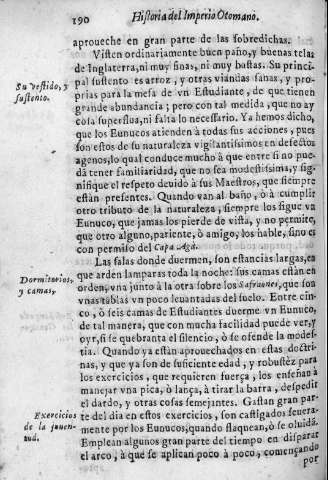 190
Historia del Imperio Otomano.
aproueche en gran parte de las sobredichas.
Su vestido, y
sustento.
Visten ordinariamente buen paño, y buenas telas
de Inglaterra, ni muy finas, ni muy bastas. Su princi-
pal sustento es arroz, y otras viandas sanas, y pro-
prias para la mesa de vn Estudiante, de que tienen
grande abundancia; pero con tal medida, que no ay
cosa superflua, ni falta lo necessario. Ya hemos dicho,
que los Eunucos atienden à todas sus acciones, pues
son estos de su naturaleza vigilantissimos en defectos
agenos, lo qual conduce mucho à que entre si no pue-
dã tener familiaridad, que no sea modestissima, y sig-
nifique el respeto deuido à sus Maestros, que siempre
estàn presentes. Quando van al baño, ò à cumplir
otro tributo de la naturaleza, siempre los sigue vn
Eunuco, que jamas los pierde de vista, y no permite,
que otro alguno, pariente, ò amigo, los hable, sino es
con permiso del Capa Agà.
Dormitorios,
y camas,
Las salas donde duermen, son estancias largas, en
que arden lamparas toda la noche: sus camas estàn en
orden, vna junto à la otra sobre los Safraunes, que son
vnas tablas vn poco leuantadas del suelo. Entre cin-
co, ò seis camas de Estudiantes duerme vn Eunuco,
de tal manera, que con mucha facilidad puede ver, y
oyr, si se quebranta el silencio, ò se ofende la modes-
tia. Quando ya estàn aprouechados en estas doctri-
nas, y que ya son de suficiente edad, y robustèz para
los exercicios, que requieren fuerça, los enseñan à
manejar vna pica, ò lança, à tirar la barra, despedir
el dardo, y otras cosas semejantes. Gastan gran par-
Exercicios
de la juuen-
tud.
te del dia en estos exercicios, son castigados seuera-
mente por los Eunucos, quando flaquean, ò se oluidã.
Emplean algunos gran parte del tiempo en disparar
el arco, à que se aplican poco à poco, començando
por